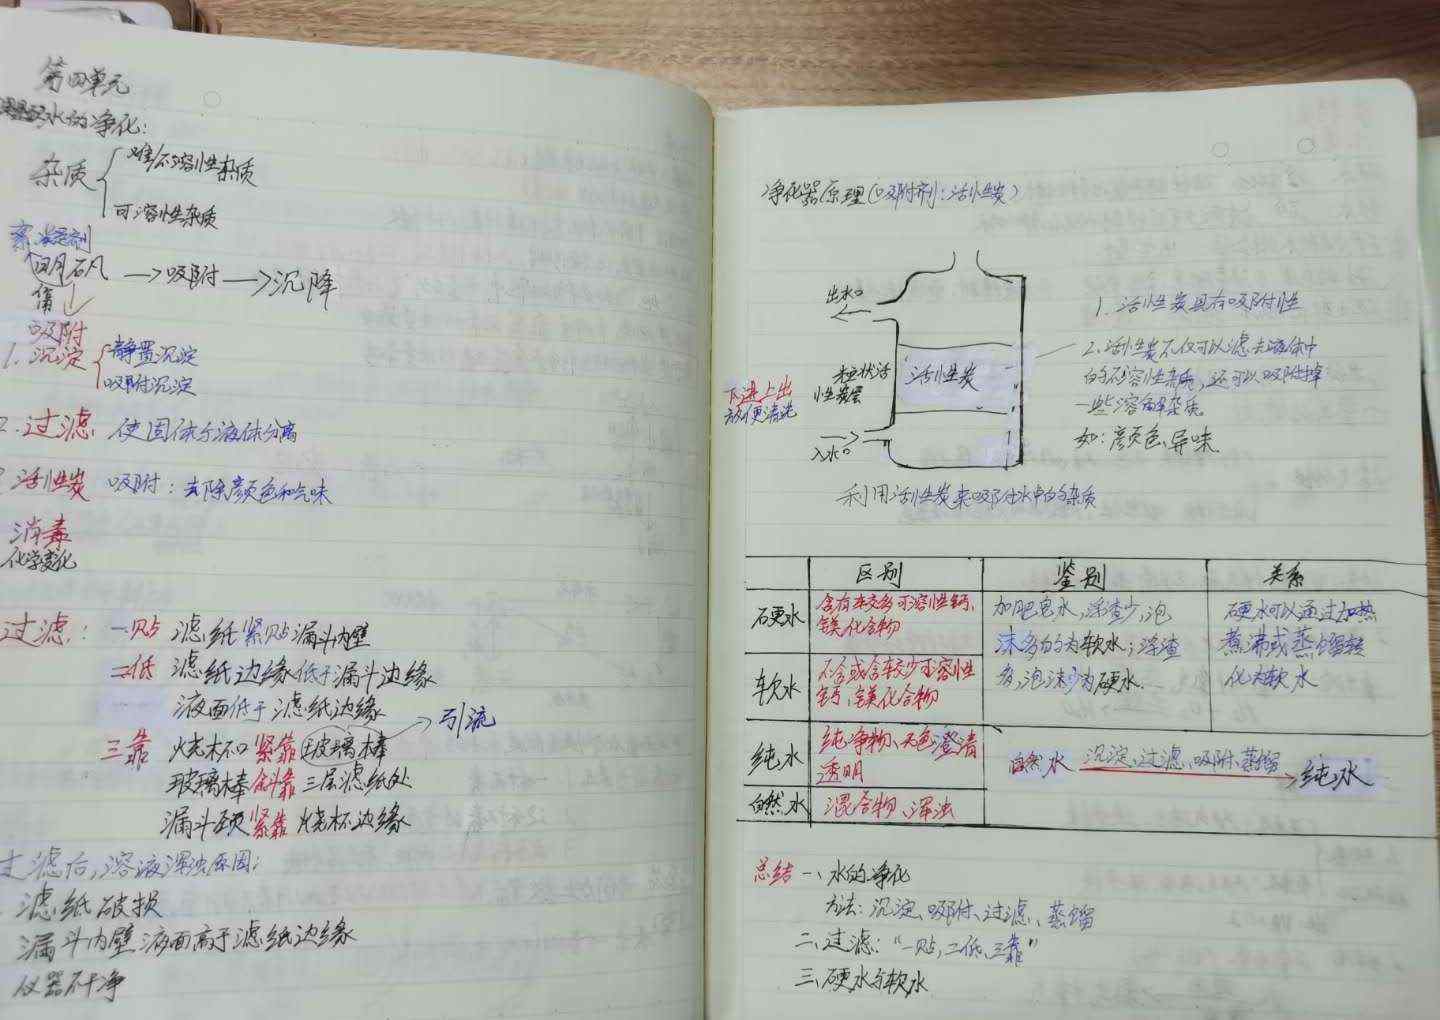 第四单元
水的净化:
杂质
难/不溶性杂质
可溶性杂质
絮凝剂
明矾 → 吸附 → 沉降
吸附
1. 沉淀
静置沉淀
吸附沉淀
2. 过滤 使固体与液体分离
活性炭 吸附: 去除颜色和气味
消毒
化学变化
过滤: 一贴 滤纸紧贴漏斗内壁
二低 滤纸边缘低于漏斗边缘
液面低于滤纸边缘
→ 引流
三靠 烧杯口紧靠玻璃棒
玻璃棒斜靠三层滤纸处
漏斗颈紧靠烧杯边缘
过滤后,溶液浑浊原因:
滤纸破损
漏斗内壁液面高于滤纸边缘
仪器不干净
净化器原理(吸附剂:活性炭)
出水口
粒状活
性炭层
活性炭
入水口
下进上出
方便清洗
1. 活性炭具有吸附性
2. 活性炭不仅可以滤去液体中
的不溶性杂质,还可以吸附掉
一些溶解杂质
如:颜色、异味
利用活性炭来吸附水中的杂质
区别 鉴别 关系
硬水
含有较多可溶性钙、
镁化合物
软水
不含或含较少可溶性
钙、镁化合物
加肥皂水,浮渣少,泡
沫多的为软水;浮渣
多,泡沫少为硬水.
硬水可以通过加热
煮沸或蒸馏转
化为软水
纯水
纯净物、无色澄清
透明
自然水
混合物、浑浊
自然水 沉淀、过滤、吸附、蒸馏 → 纯水
总结 一、水的净化
方法:沉淀、吸附、过滤、蒸馏
二、过滤:"一贴,二低,三靠"
三、硬水与软水